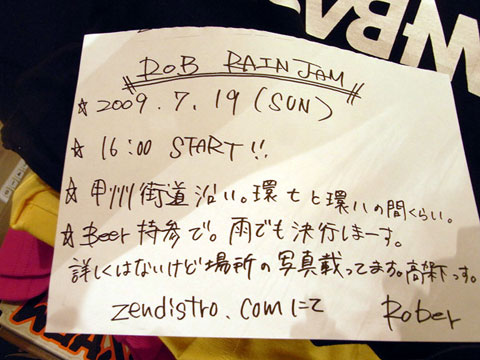 ROB RAIN JAM
☆ 2009.7.19 (SUN)
☆ 16:00 START!!
☆ 甲州街道沿い。環七と環八の間くらい。
☆ Beer 持参で。雨でも決行しまーす。
詳しくはないけど場所の写真載ってます。高架下っす。
zendistro.comにて Rober